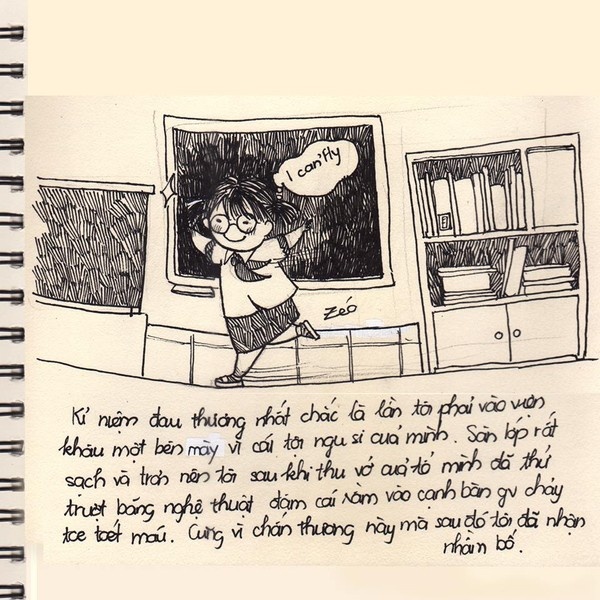 I can'fly
Zéo
Kỉ niệm đau thương nhất chắc là lần tôi phải vào viện
khâu một bên mày vì cái tội ngu si của mình. Sàn lớp rất
sạch và trơn nên tôi sau khi thu vở của tổ mình đã thử
trượt băng nghệ thuật đâm cái sầm vào cạnh bàn gv chảy
toe toét máu. Cũng vì chấn thương này mà sau đó tôi đã nhận
nhầm bố.